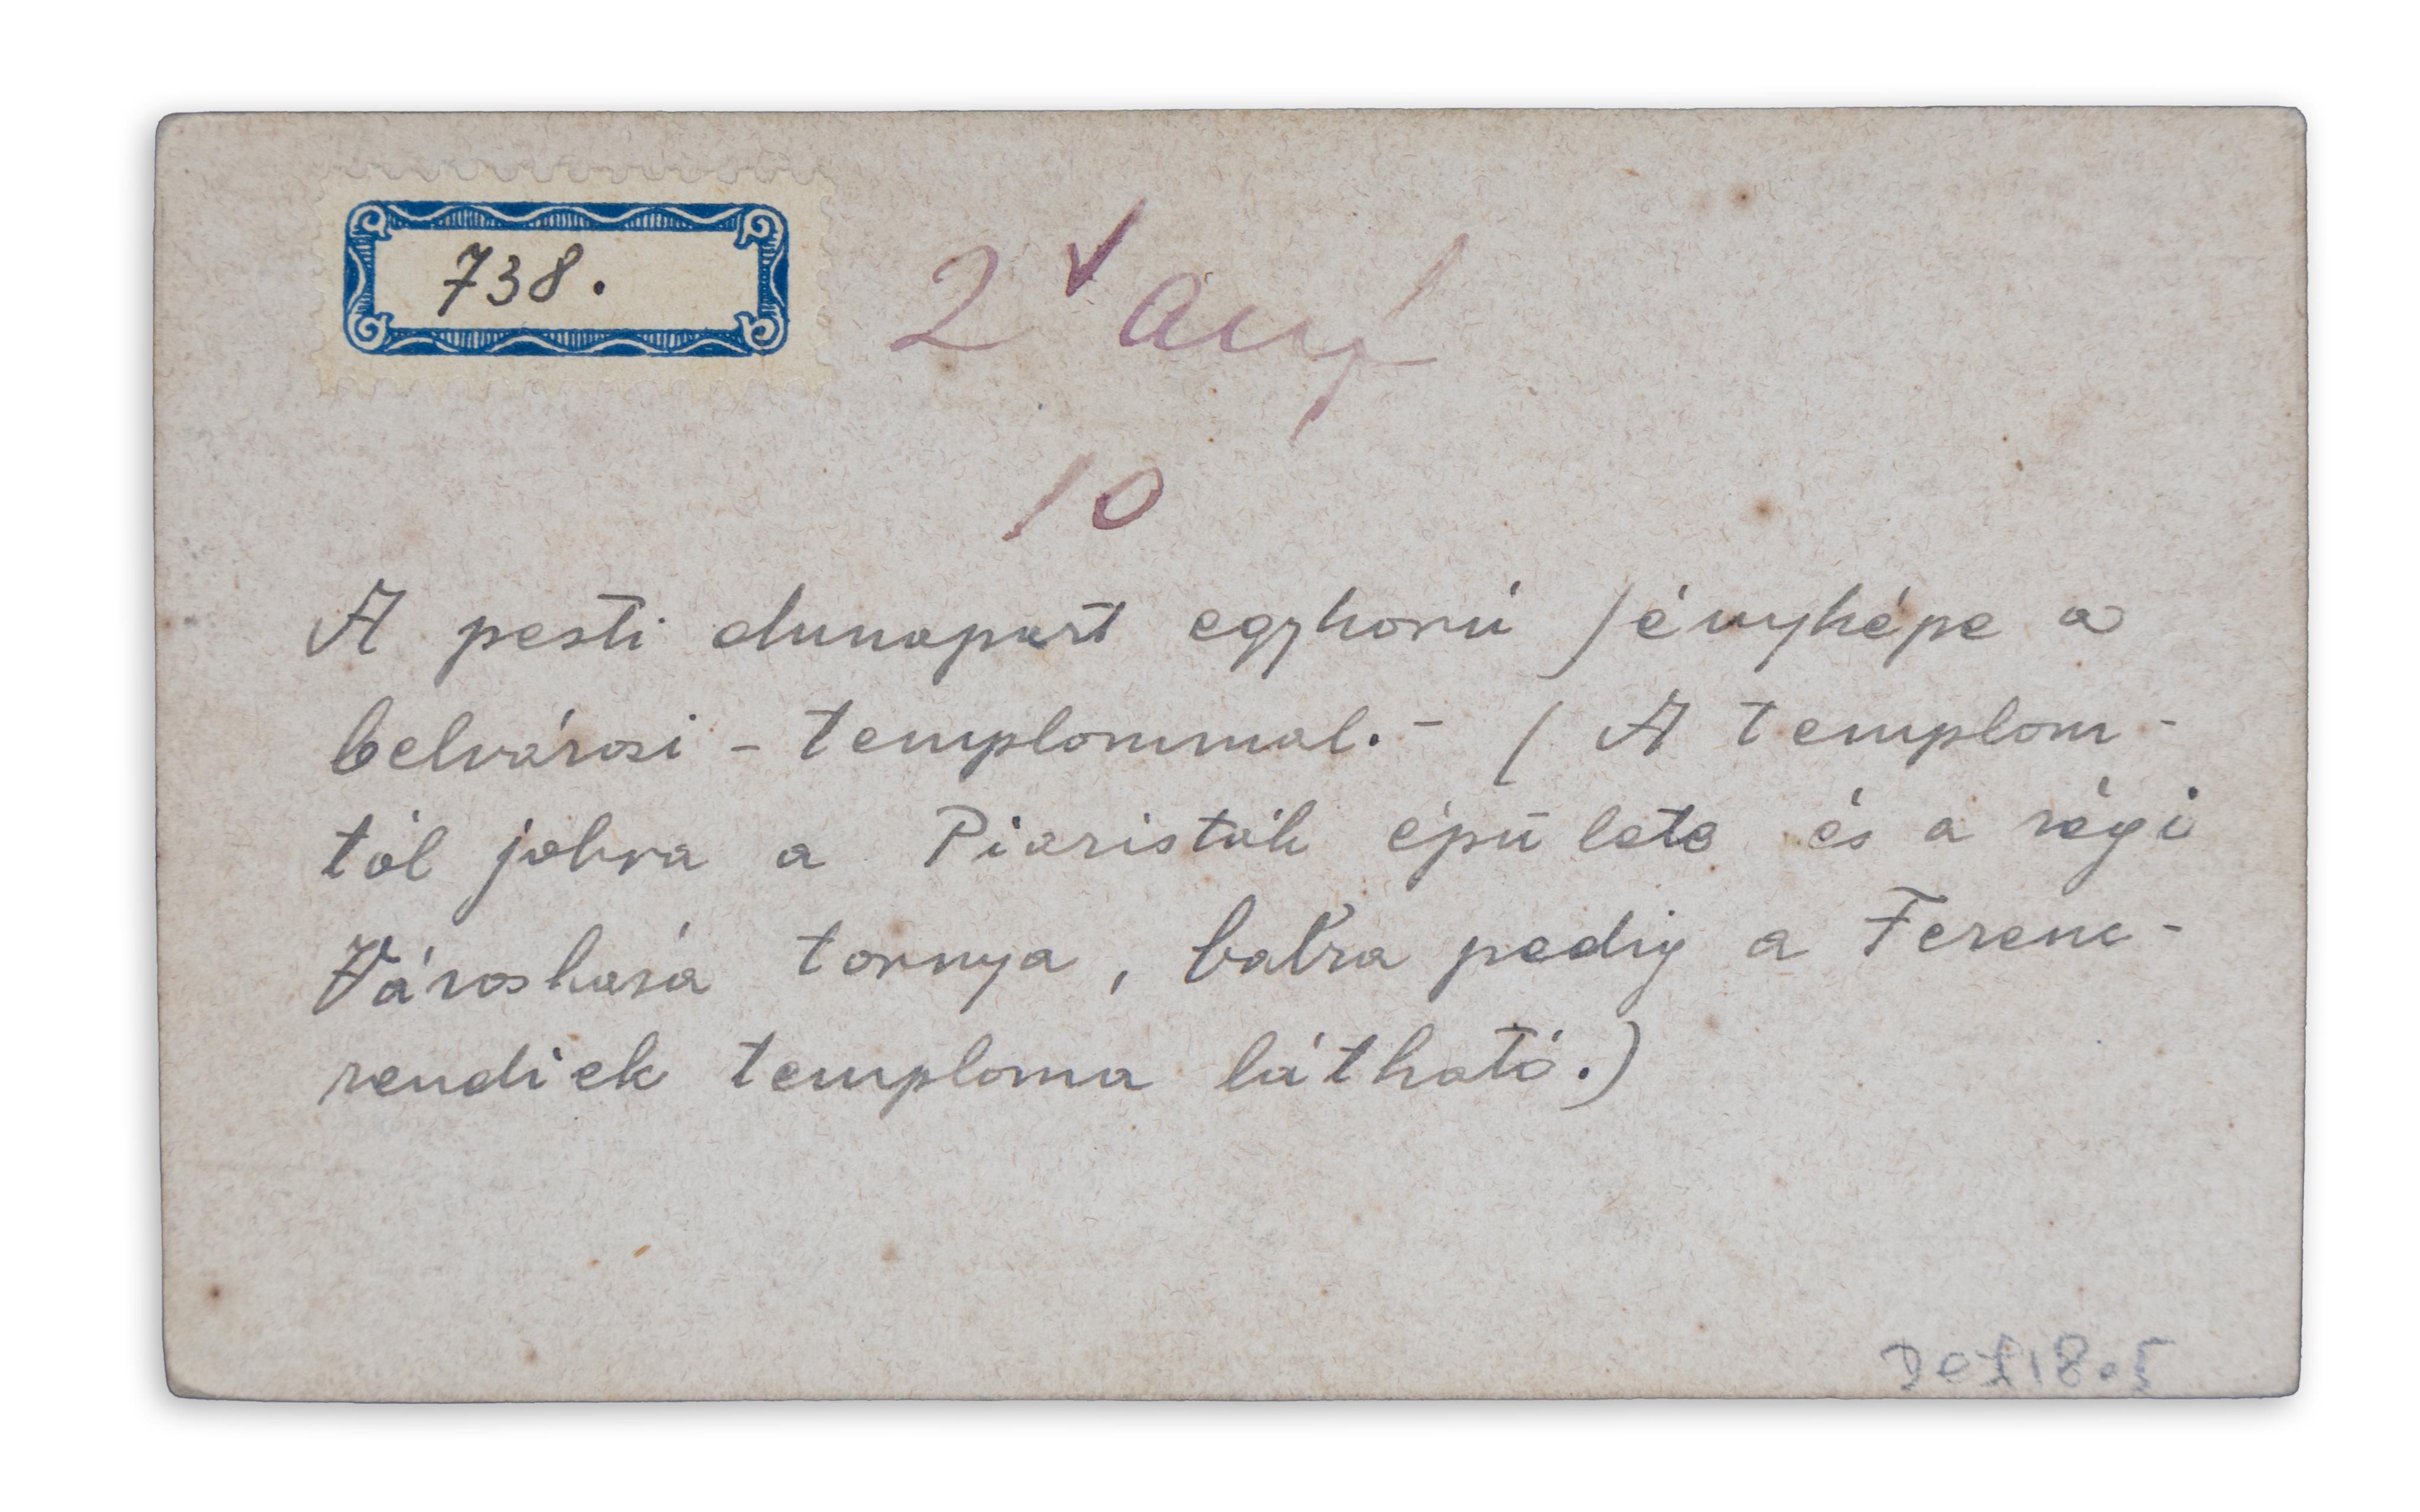 738.
2 auf
10
A pesti dunapart egyhorú fényképe a
belvárosi - templommal. - ( A templom -
tól jobra a Piaristák épülete és a régi
Városhasá tornya, balra pedig a Ferenc -
rendiek temploma látható.)